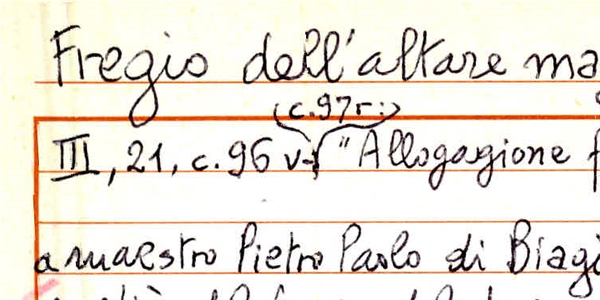 Fregio dell'altare ma
(c.97r:)
III, 21, c.96 v-r "Allogagione f
a maestro Pietro Paolo di Biagi